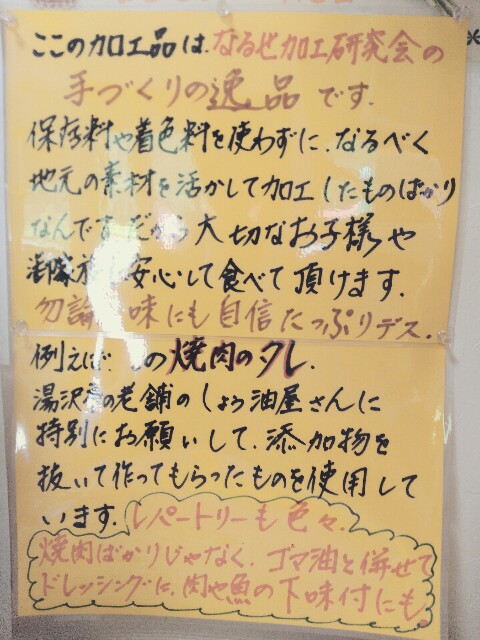 ここの加工品は、なるせ加工研究会の
手づくりの逸品です.
保存料や着色料を使わずに、なるべく
地元の素材を活かして加工したものばかり
なんです だから大切なお子様や
安心して食べて頂けます.
勿論 味にも自信たっぷりデス.
例えば、この焼肉のタレ.
湯沢の老舗のしょう油屋さんに
特別にお願いして、添加物を
抜いて作ってもらったものを使用して
います. レパートリーも色々.
焼肉ばかりじゃなく、ゴマ油と併せて
ドレッシングに、肉や魚の下味付にも.